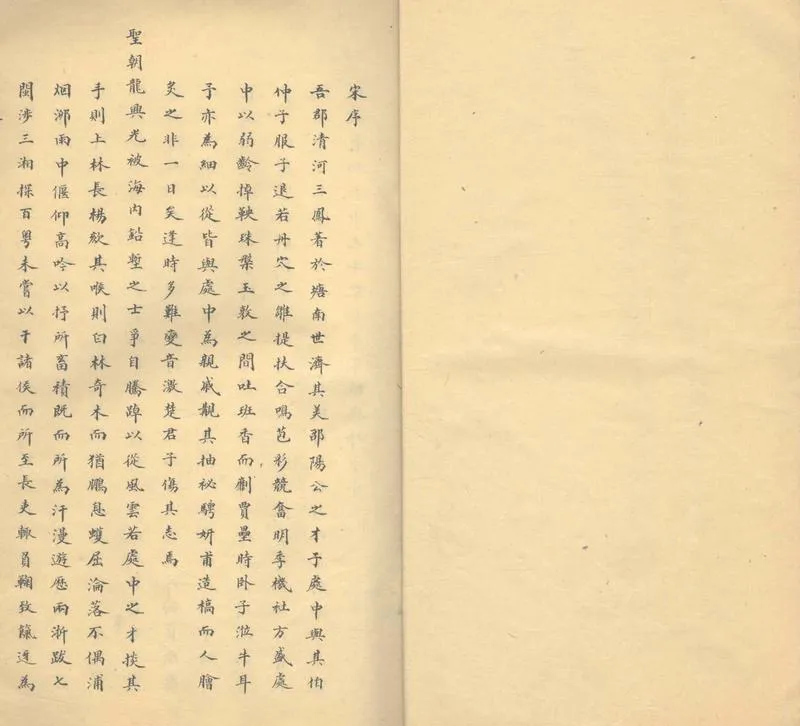 宋序
吾郡清河三鳳著於塘南世濟其美邵陽公之才子處中與其伯
仲子服子退若丹穴之雛提扶合鳴苞彩競奮明季機社方盛處
中以弱齡掉鞅珠槃玉敦之間吐班香而劘賈壘時卧子涖牛耳
予亦為細以從皆與處中為親戚覩其抽秘騁妍甫造槁而人膾
炙之非一日矣逢時多難變音激楚君子傷其志焉
聖朝龍興光被海內鉛槧之士爭自騰踔以從風雲若處中之才掞其
手則上林長楊欬其喉則白林奇木而猶鵬息蠖屈淪落不偶浦
烟泖雨中偃仰高吟以抒所畜積既而所為汗漫遊歷兩浙跋七
閩涉三湘探百粵未嘗以干諸侯而所至長吏輙負鞠致籬迓為